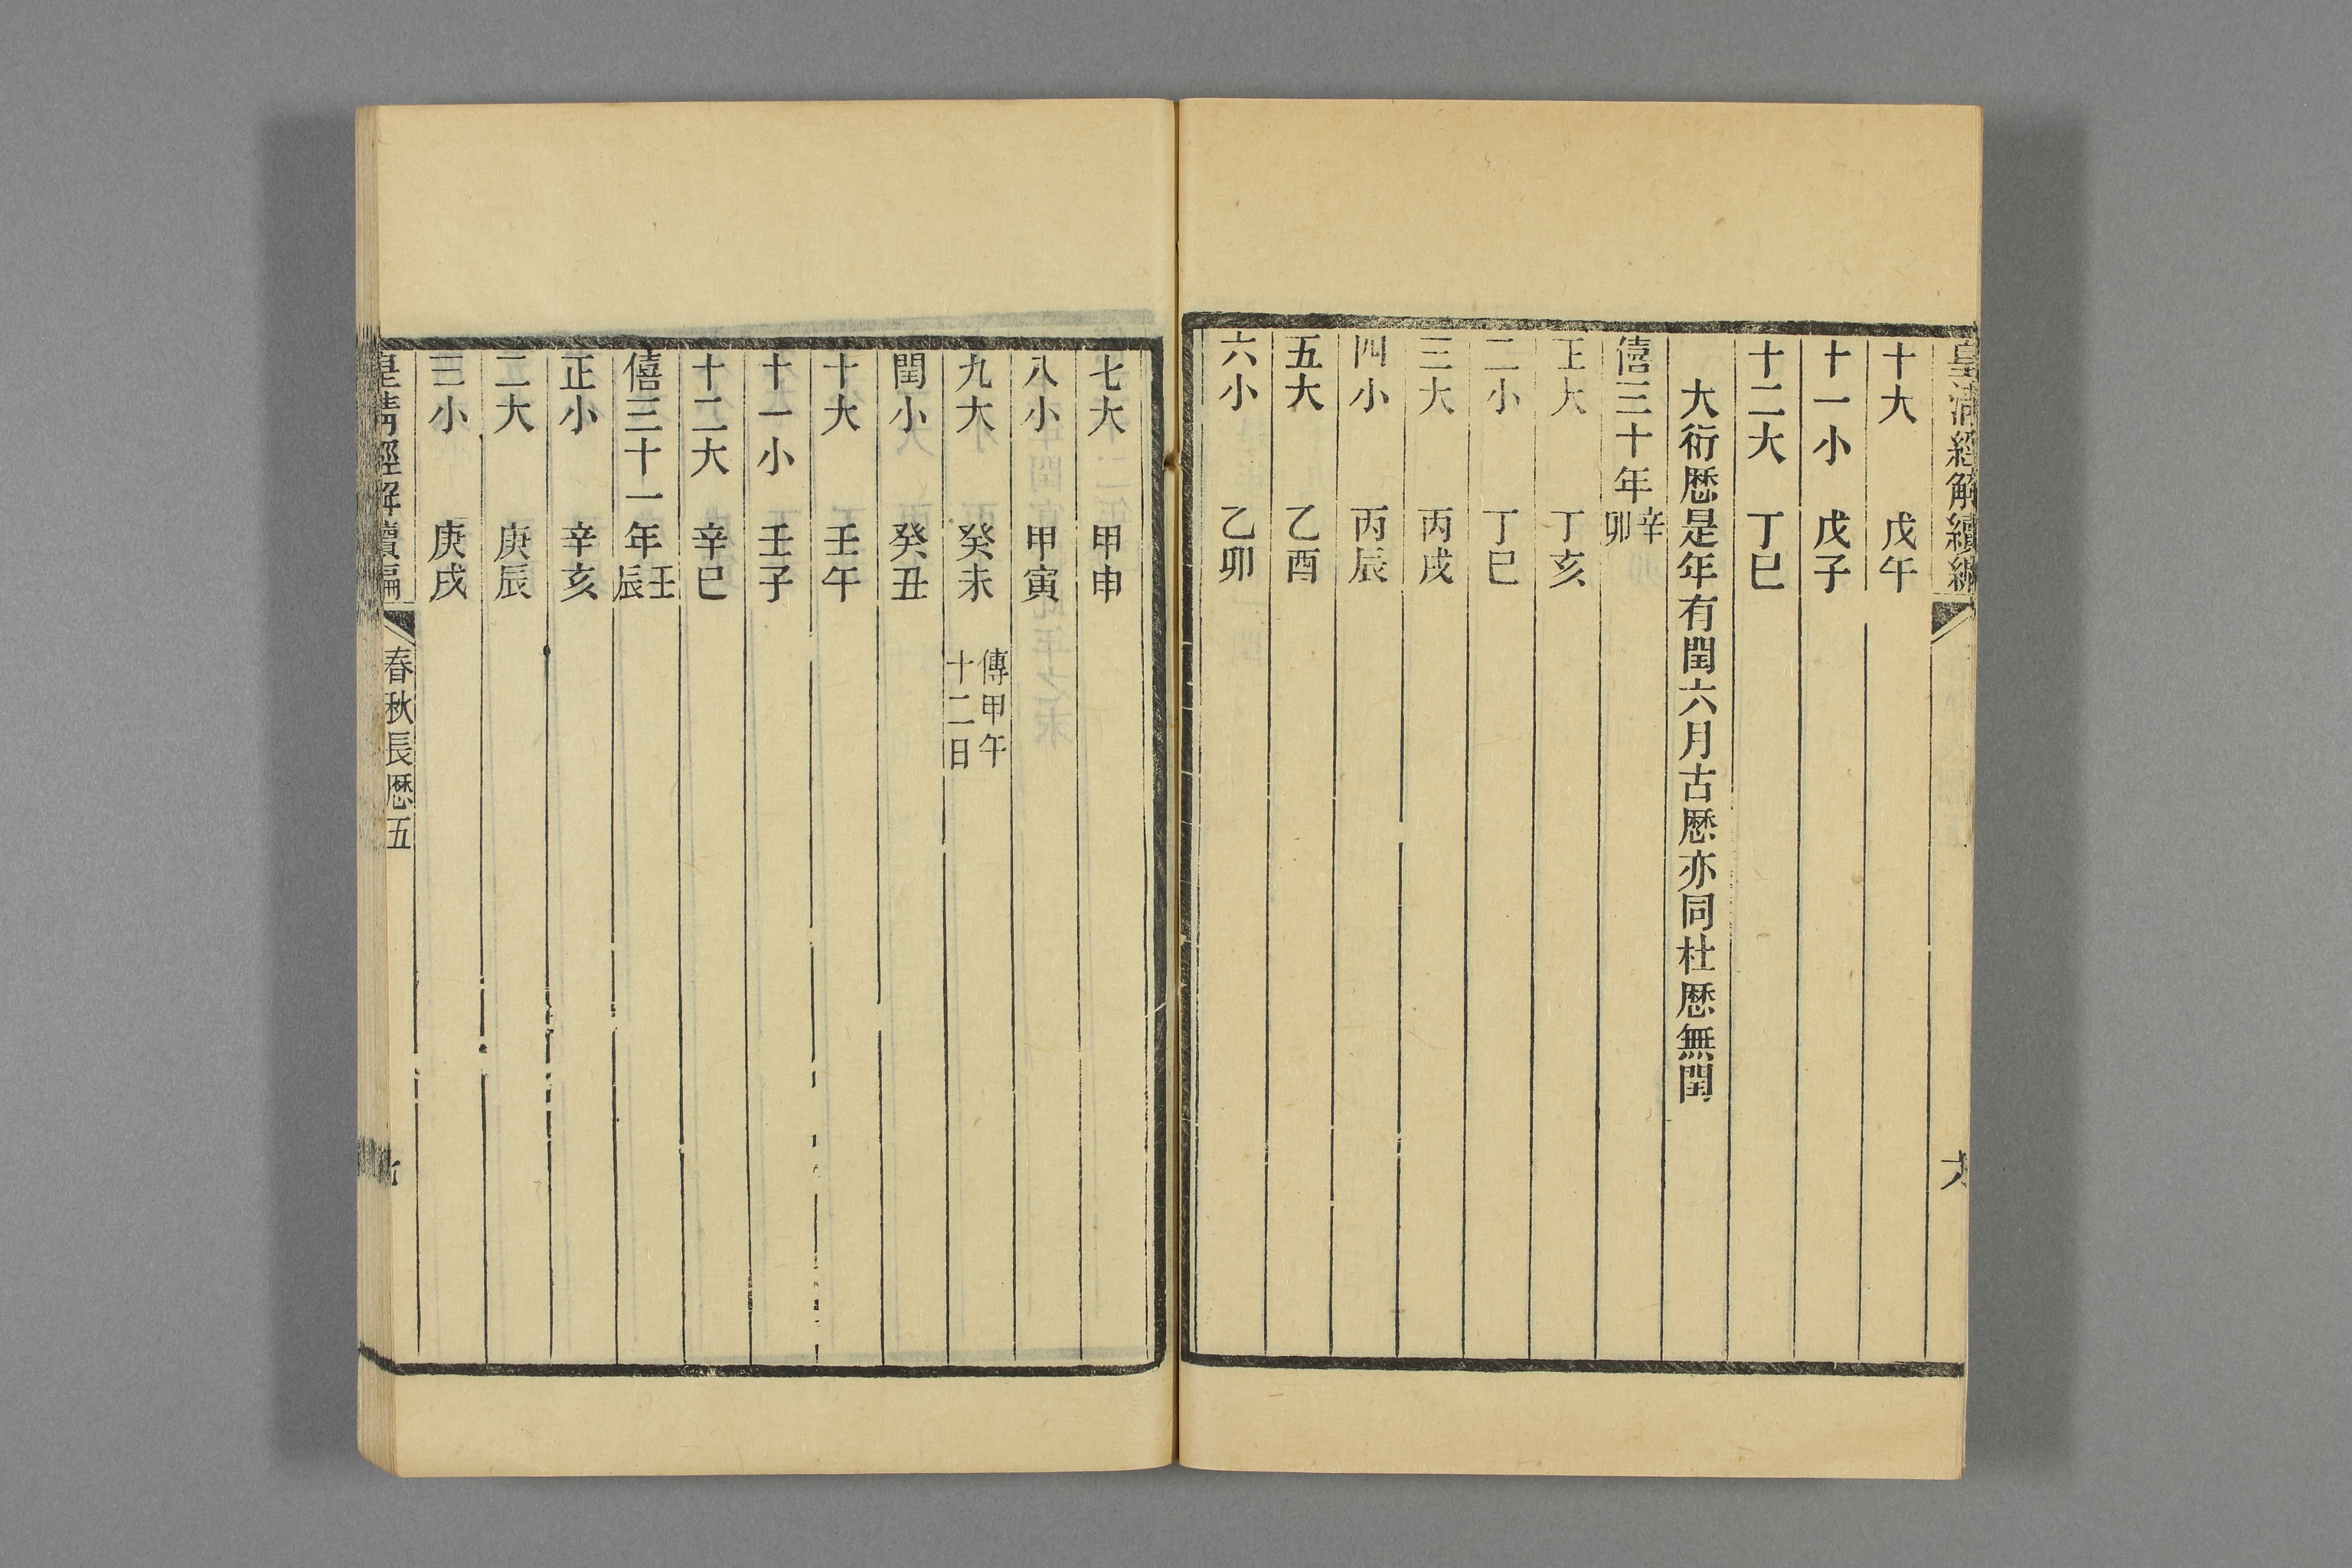 皇清經解續編
六
十大 戊午
十一小 戊子
十二大 丁巳
大衍厯是年有閏六月古厯亦同杜厯無閏
僖三十年 辛卯
正大 丁亥
二小 丁巳
三大 丙戌
四小 丙辰
五大 乙酉
六小 乙卯
七大 甲申
八小 甲寅
九大 癸未 傳甲午十二日
閏小 癸丑
十大 壬午
十一小 壬子
十二大 辛巳
僖三十一年 壬辰
正小 辛亥
二大 庚辰
三小 庚戌
皇清經解續編
春秋長厯五